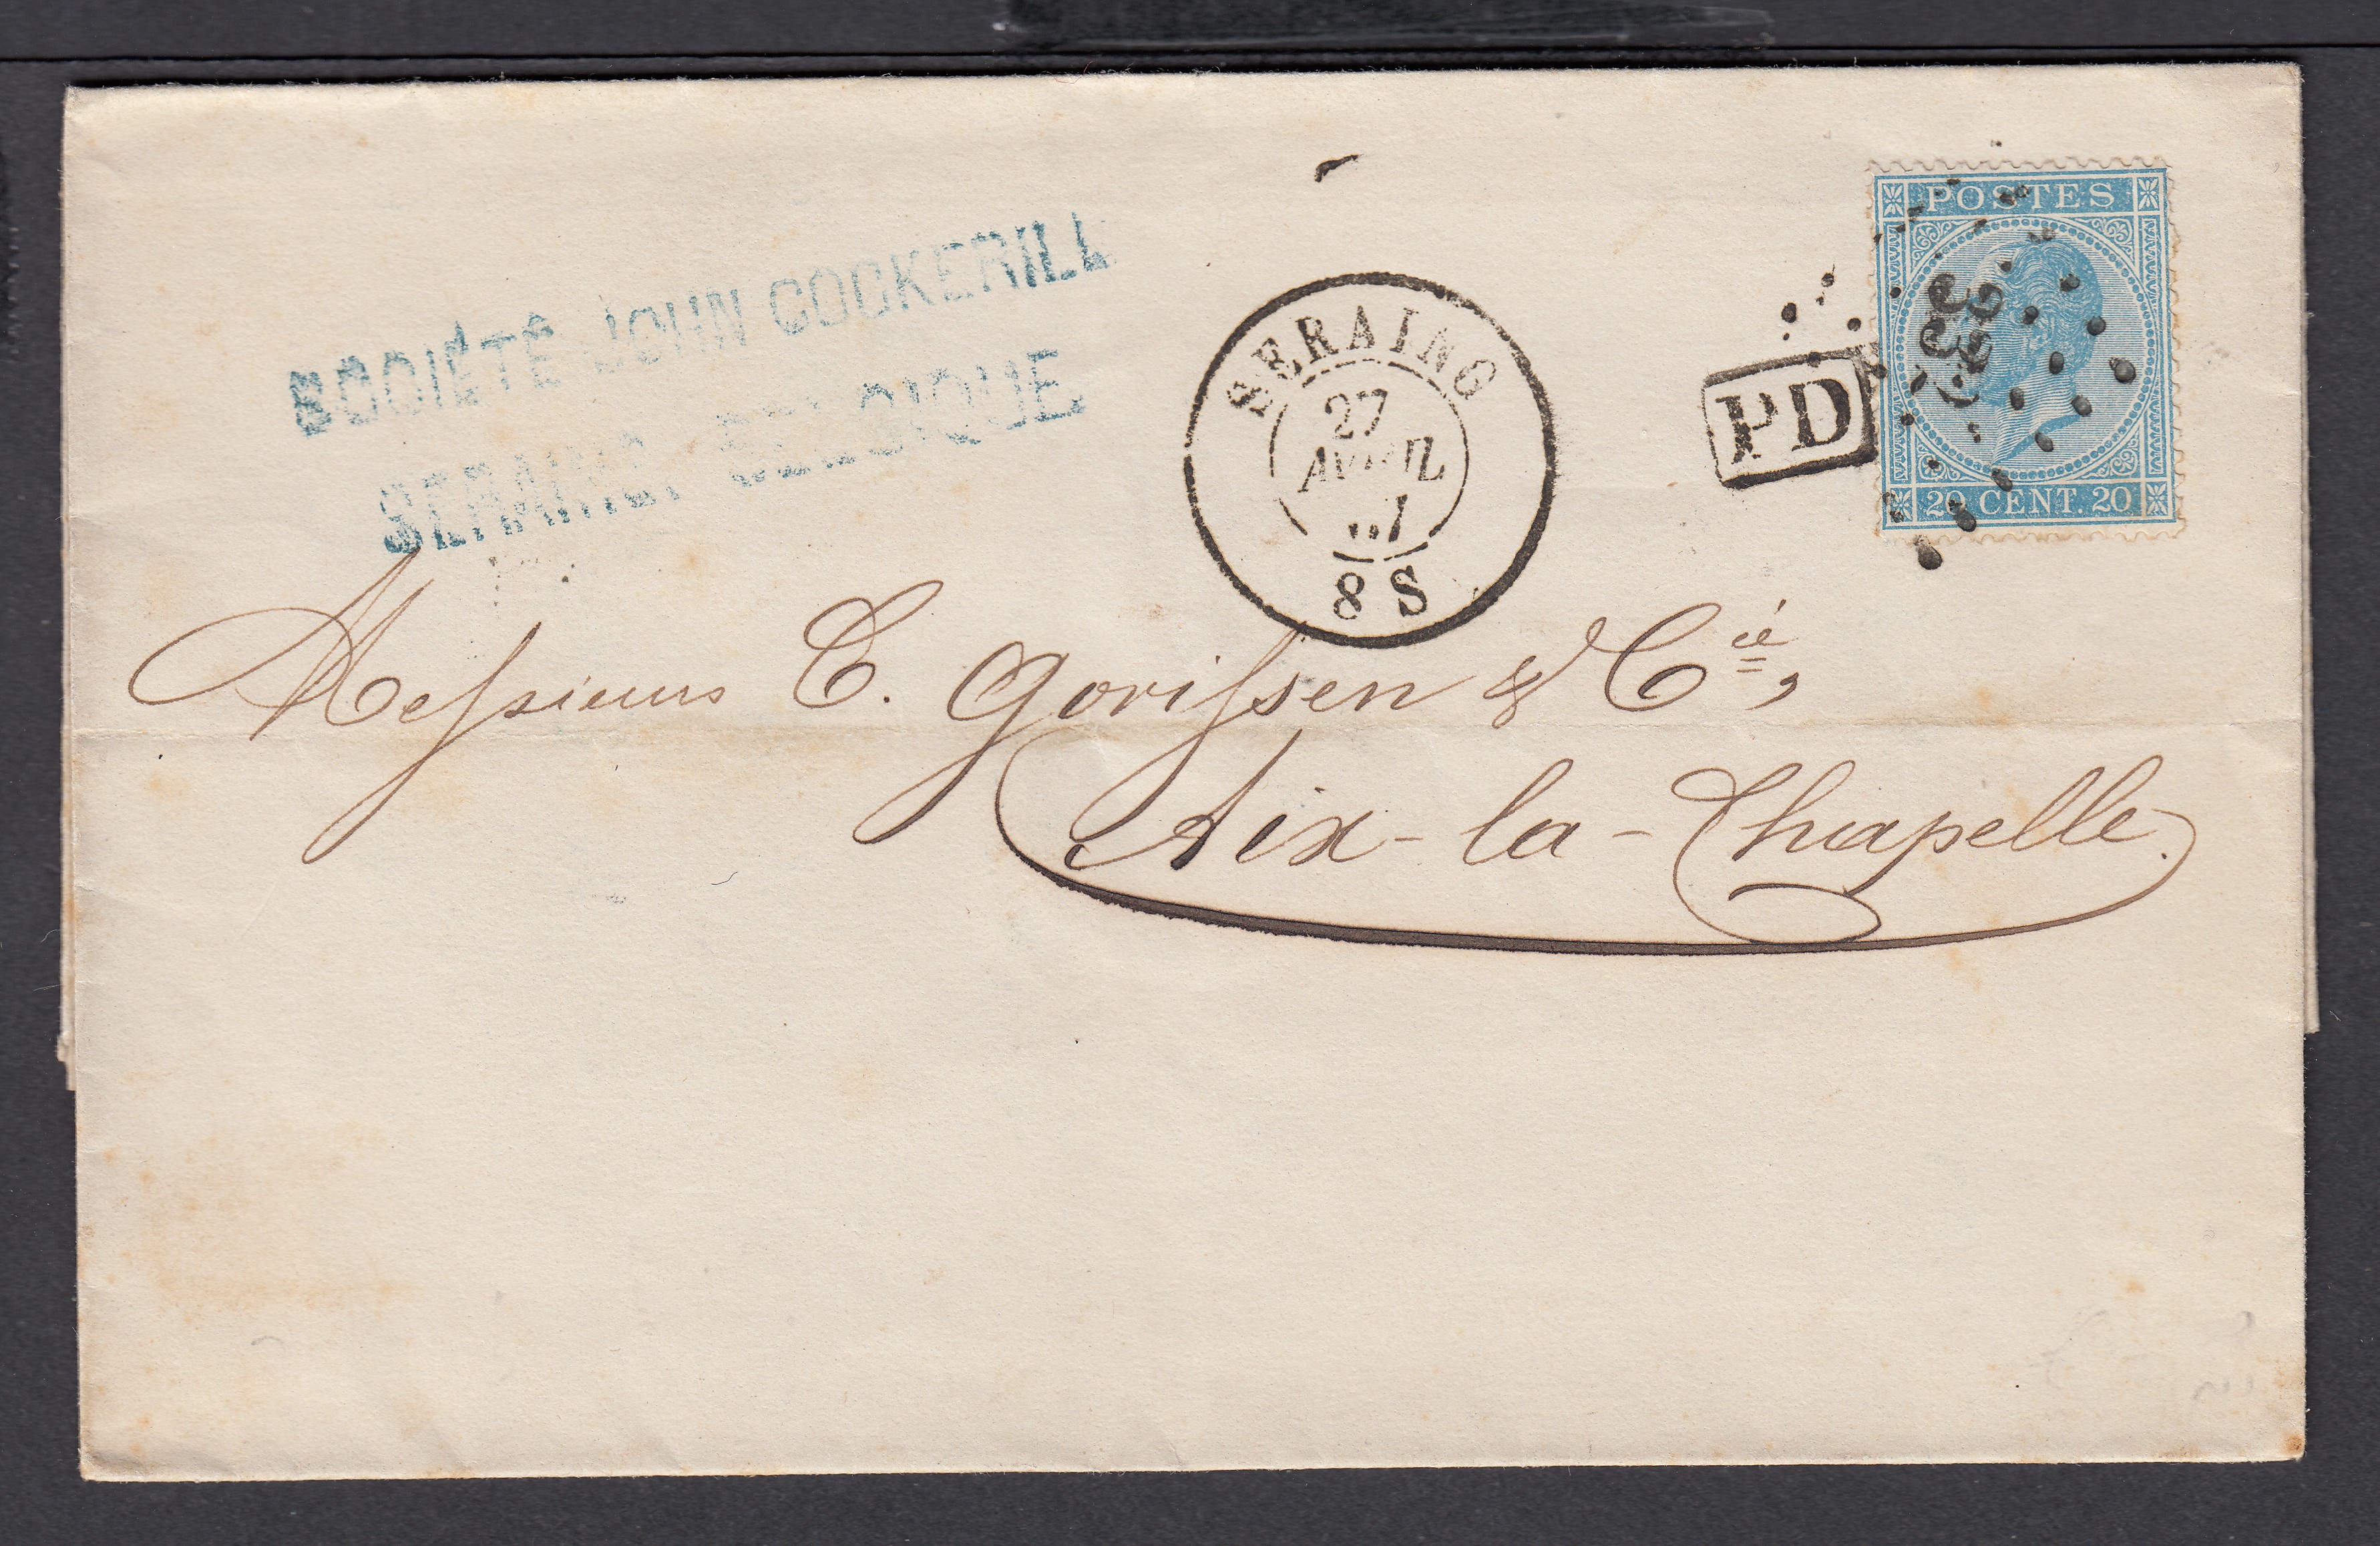 SOCIÉTÉ JOHN COCKERILL
SERAING, BELGIQUE
SERAING
27
AVRIL
8 S
PD
POSTES
20 CENT. 20
Messieurs C. Gorissen & Cie,
Aix-la-Chapelle.